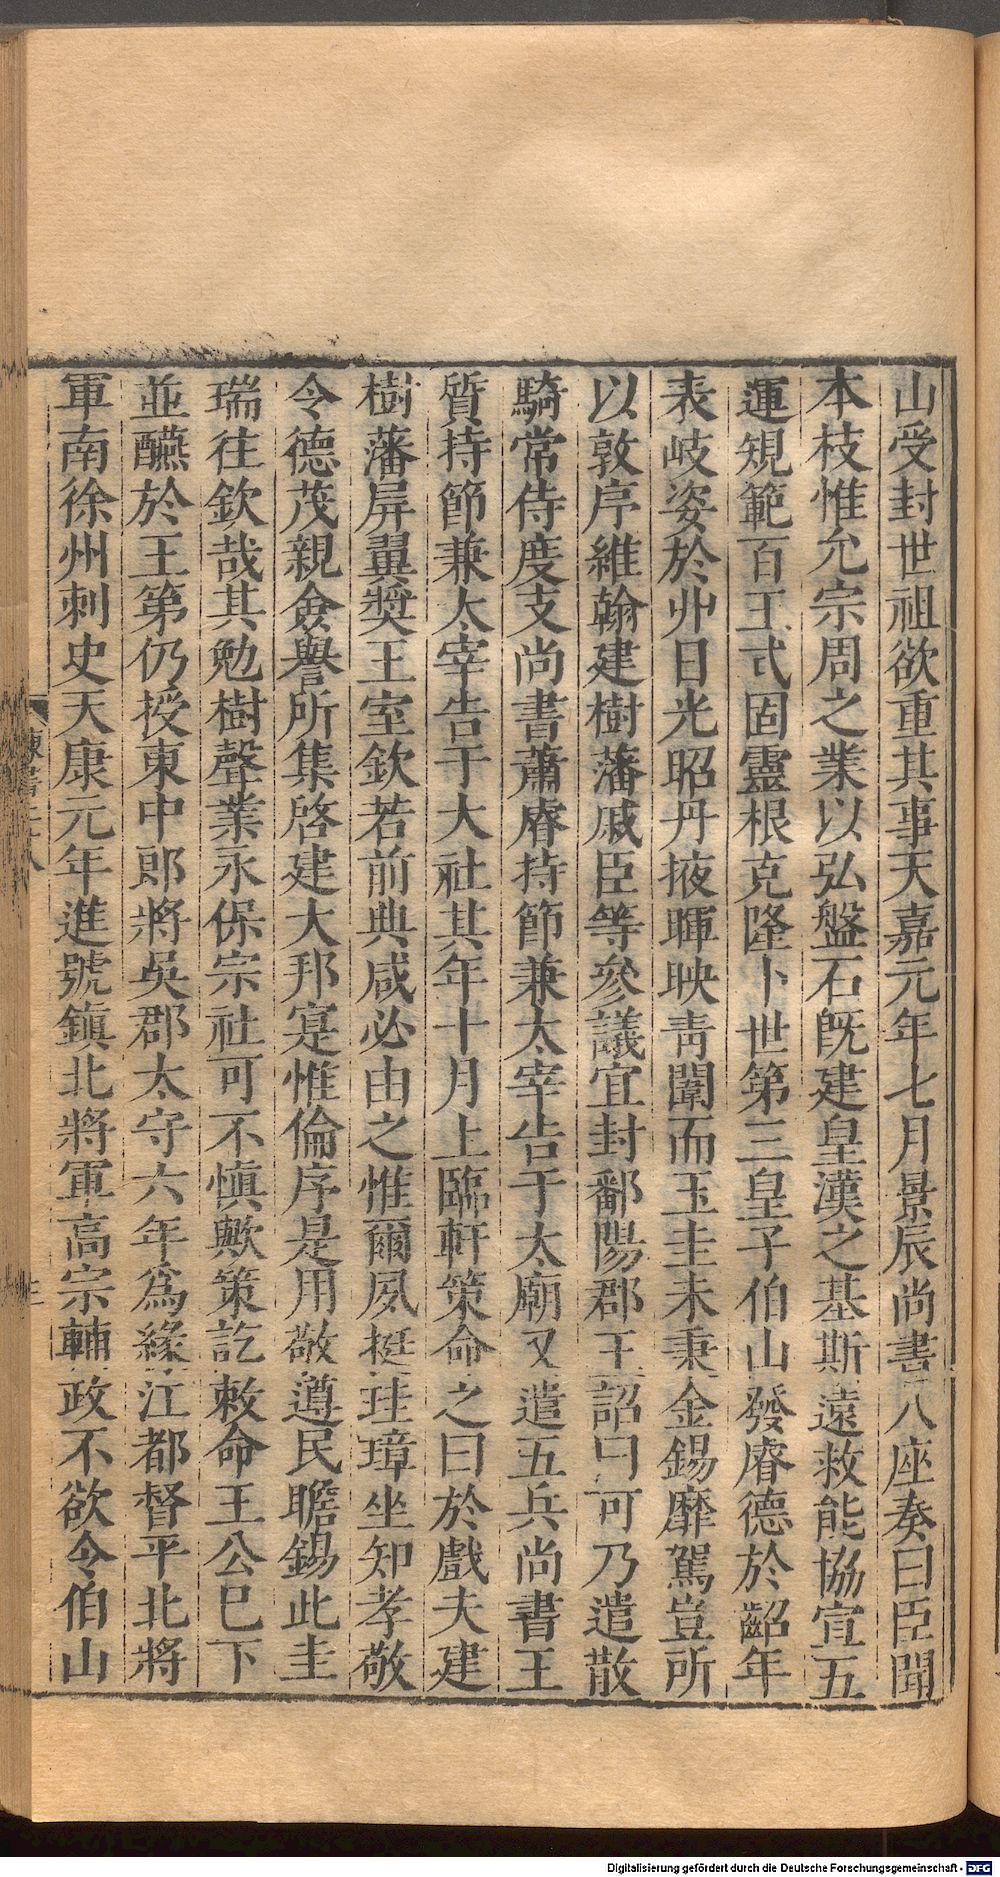 山受封世祖欲重其事天嘉元年七月景辰尚書八座奏曰臣聞
本枝惟允宗周之業以弘盤石旣建皇漢之基斯遠救能協宣五
運規範百王式固靈根克隆卜世第三皇子伯山發睿德於齠年
表岐姿於丱日光昭丹掖暉映青闈而玉圭未秉金錫靡駕豈所
以敦序維翰建樹藩戚臣等參議宜封鄱陽郡王詔曰可乃遣散
騎常侍度支尚書蕭睿持節兼太宰告于太廟又遣五兵尚書王
質持節兼太宰告于大社其年十月上臨軒策命之曰於戲夫建
樹藩屏翼奬王室欽若前典咸必由之惟爾夙挺珪璋坐知孝敬
令德茂親僉譽所集啓建大邦寔惟倫序是用敬遵民瞻錫此圭
瑞往欽哉其勉樹聲業永保宗社可不愼歟策訖敕命王公巳下
並醼於王第仍授東中郎將吳郡太守六年爲緣江都督平北將
軍南徐州刺史天康元年進號鎭北將軍高宗輔政不欲令伯山
Digitalisierung gefördert durch die Deutsche Forschungsgemeinschaft - DFG